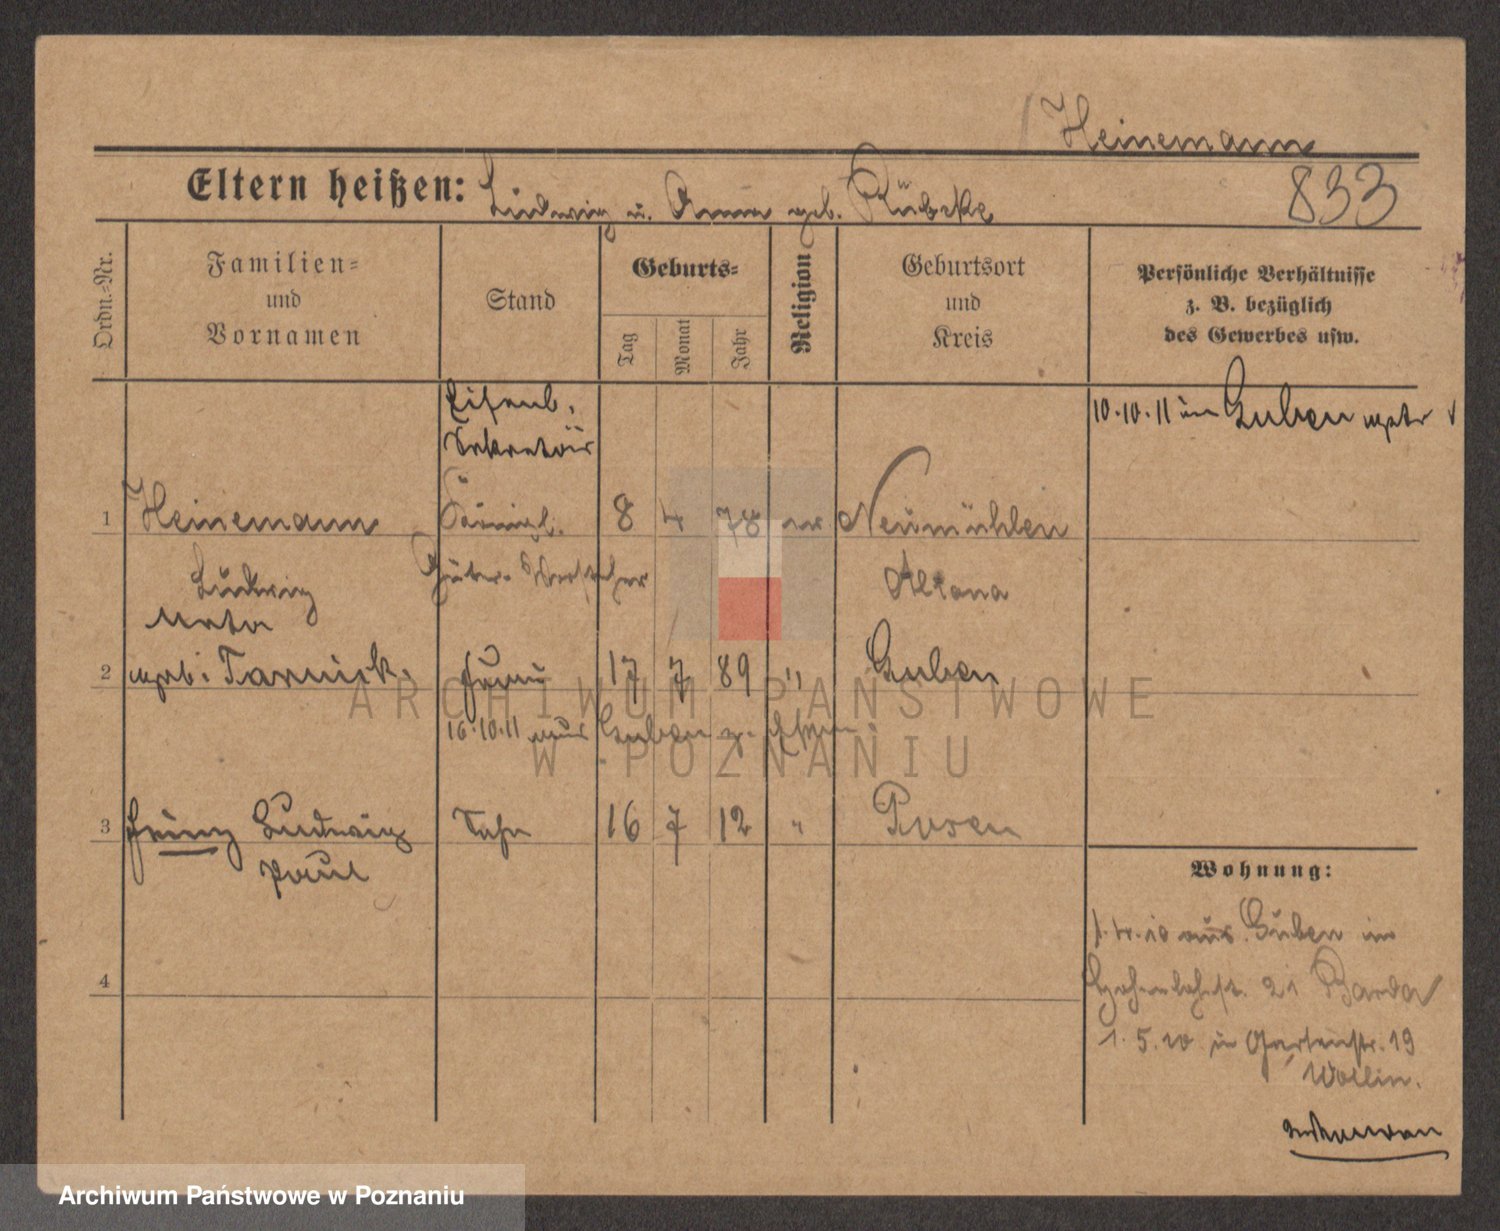 Heinemann
Eltern heißen: Ludwig u. Anna geb. Rübcke
833
Ordn.-Nr.
Familien-
und
Vornamen
Stand
Geburts-
Tag
Monat
Jahr
Religion
Geburtsort
und
Kreis
Persönliche Verhältnisse
z. B. bezüglich
des Gewerbes usw.
Eisenb.
Sekretär
10.10.11 in Guben
1 Heinemann Königl. 8 4 78 Neumühlen
Ludwig Güter-Vorsteher Altona
2 geb. Tarnick Frau 17 7 89 " Guben
16.10.11 aus Guben z. Ehem.
3 Heinz Ludwig Sohn 16 7 12 " Posen
Paul
4
Wohnung:
1.4.10 aus Guben in
Hohenlohestr. 21 Barda
1.5.10 in Gartenstr. 19
Wollin.
ARCHIWUM PAŃSTWOWE
W POZNANIU
Archiwum Państwowe w Poznaniu